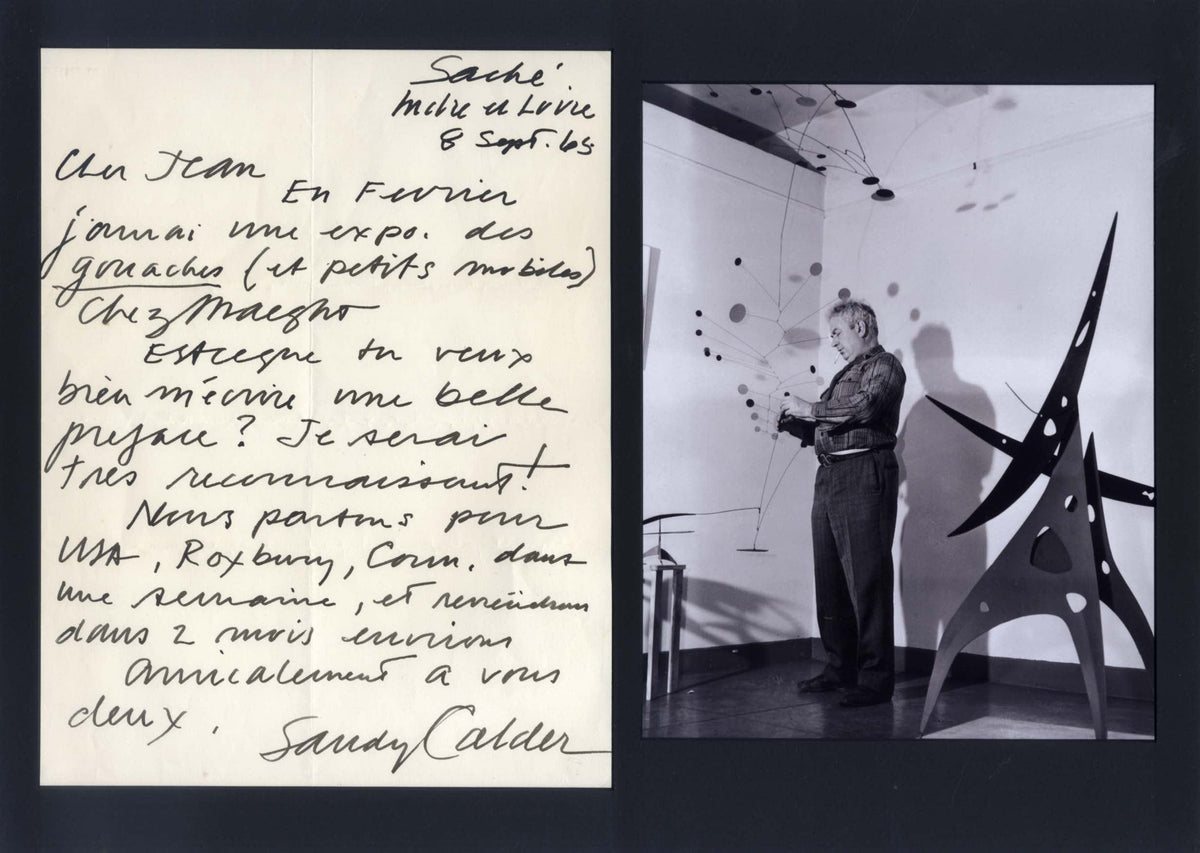 Saché
Indre et Loire
8 Sept. 65
Cher Jean
En Fevrier
j'aurai une expo. des
gouaches (et petits mobiles)
Chez Maeght
Esteeque tu veux
bien m'écrire une belle
preface? Je serai
très reconnaissant!
Nous partons pour
USA, Roxbury, Conn. dans
une semaine, et reviendrons
dans 2 mois environs
Amicalement a vous
deux.
Sandy Calder